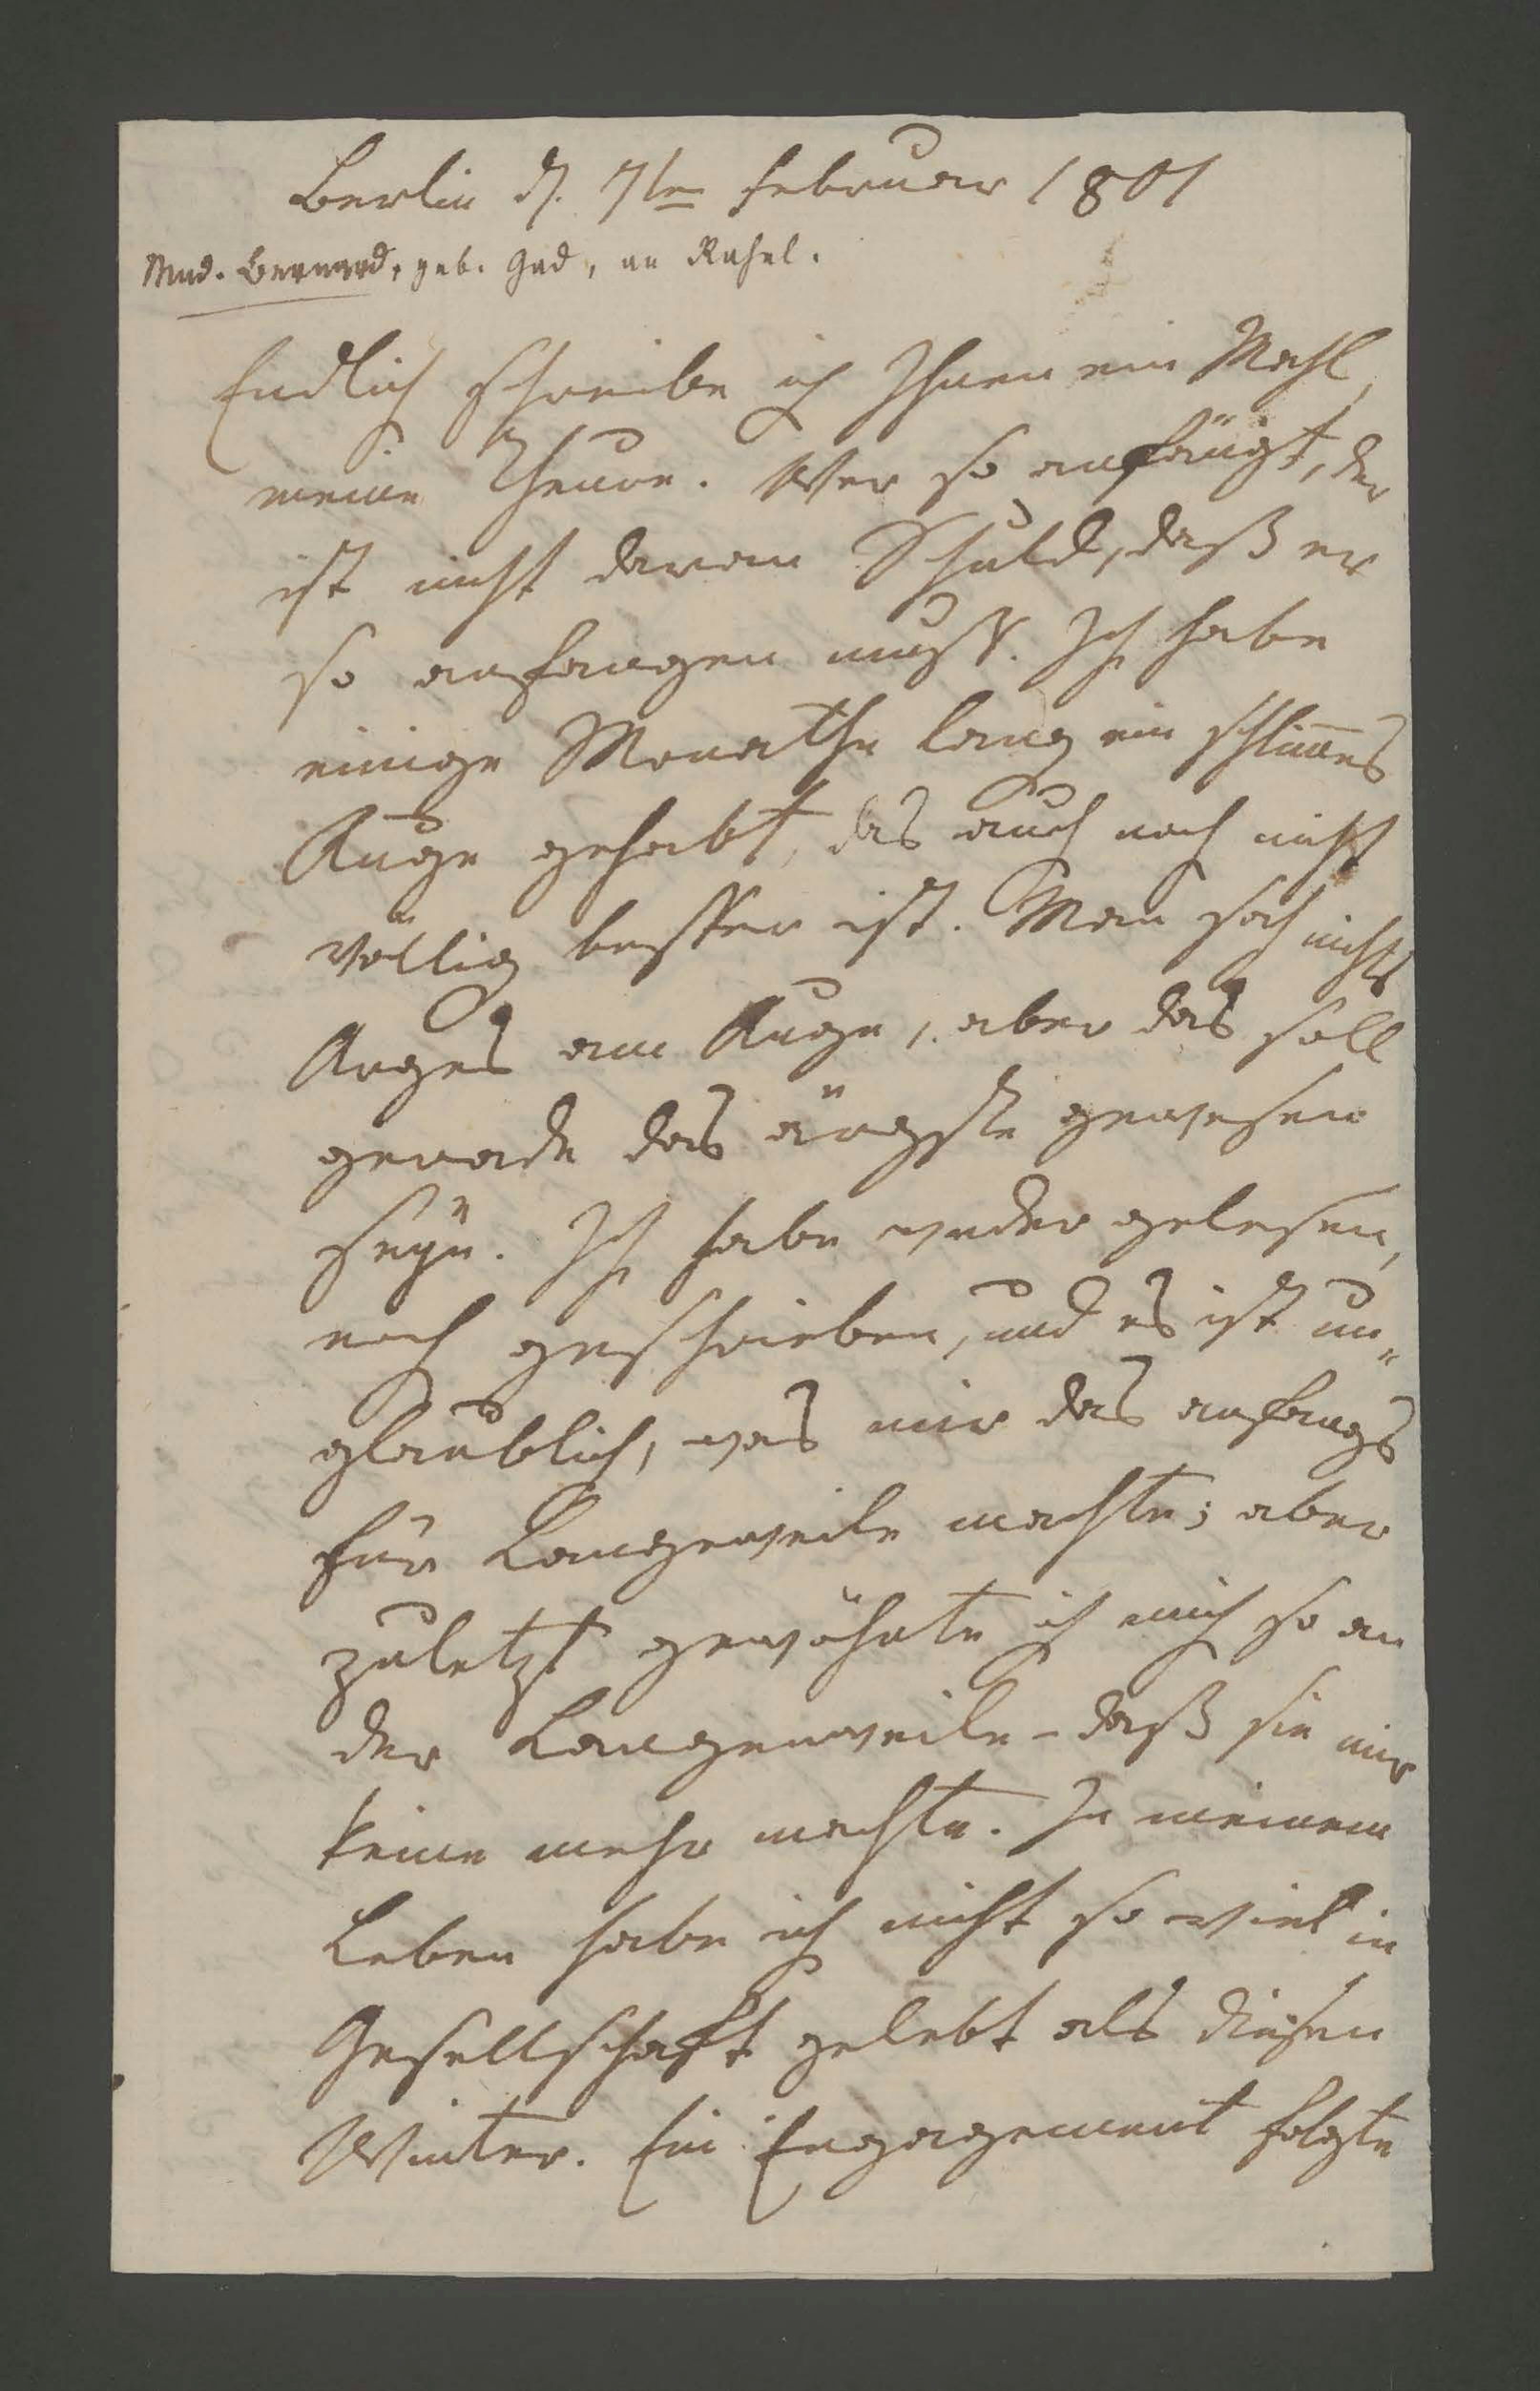 Berlin d. 7ten Februar 1801
Mad. Bernard, geb. Gad, an Rahel.
Endlich schreibe ich Ihnen ein Mahl,
meine Theure. Wer so anfängt, der
ist nicht daran Schuld, daß er
so anfangen muß. Ich habe
einige Monathe lang ein schlim̅es
Auge gehabt, das auch noch nicht
völlig besser ist. Man sah nichts
Arges am Auge, aber das soll
gerade das ärgste gewesen
seyn. Ich habe weder gelesen,
noch geschrieben, und es ist un„
glaublich, was mir das anfangs
für Langeweile machte; aber
zuletzt gewöhnte ich mich so an
der Langenweile – daß sie mir
keine mehr machte. In meinem
Leben habe ich nicht so viel in
Gesellschaft gelebt als diesen
Winter. Ein Engagement folgte